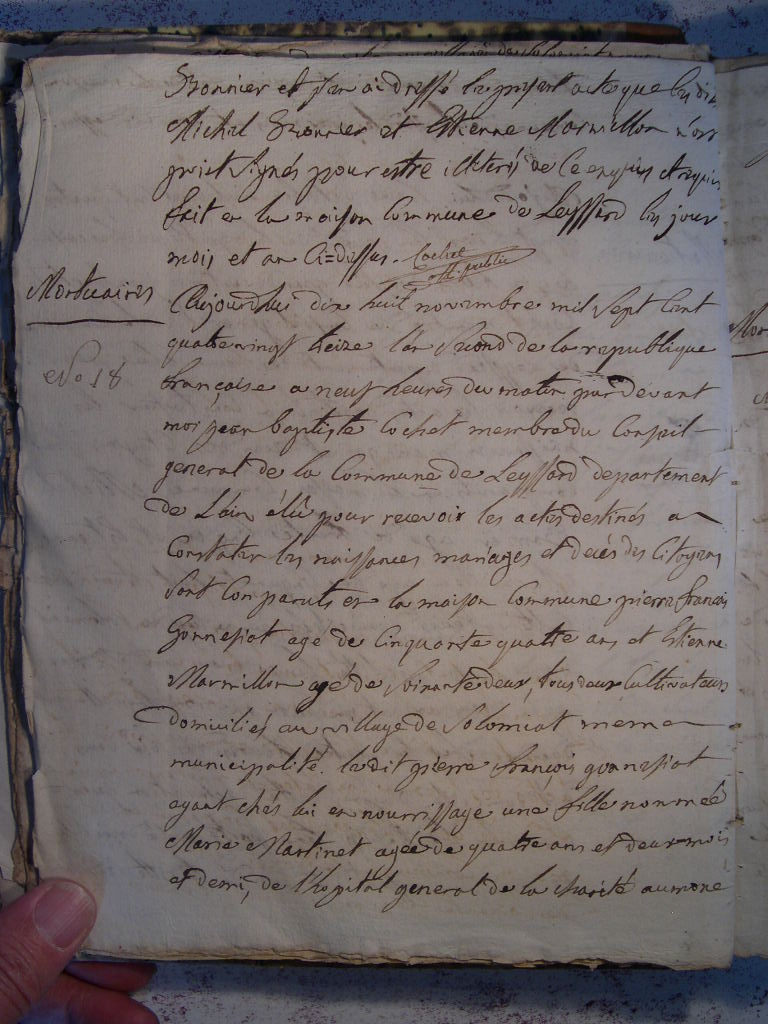 et j'en ai dressé le present acte que les dits
Michel et Etienne Marmillon n'ont
point signés pour estre illiterés de ce enquis et requis
fait en la maison Commune de Leyssard les jour
mois et an Ci=dessus. Cochet
off. public
Mortuaires
No 18
Aujourdhui dix huit novembre mil sept Cent
quatrevingt treize l'an second de la republique
française a neuf heures du matin par devant
moi jean baptiste Cochet membre du Conseil
general de la Commune de Leyssard departement
de L'ain élû pour recevoir les actes destinés a
Constater les naissances mariages et decès des Citoyens
sont Comparuts en la maison Commune pierre francois
Gonnessiat agé de Cinquante quatre ans et Etienne
Marmillon agé de soixante deux, tous deux Cultivateurs
domiciliés au village de Solomiat meme
municipalité. ledit pierre françois gonnessiat
ayant chés lui en nourrissage une fille nommée
Marie Martinet agée de quatre ans et deux mois
et demi, de l'hopital general de la charité aumone